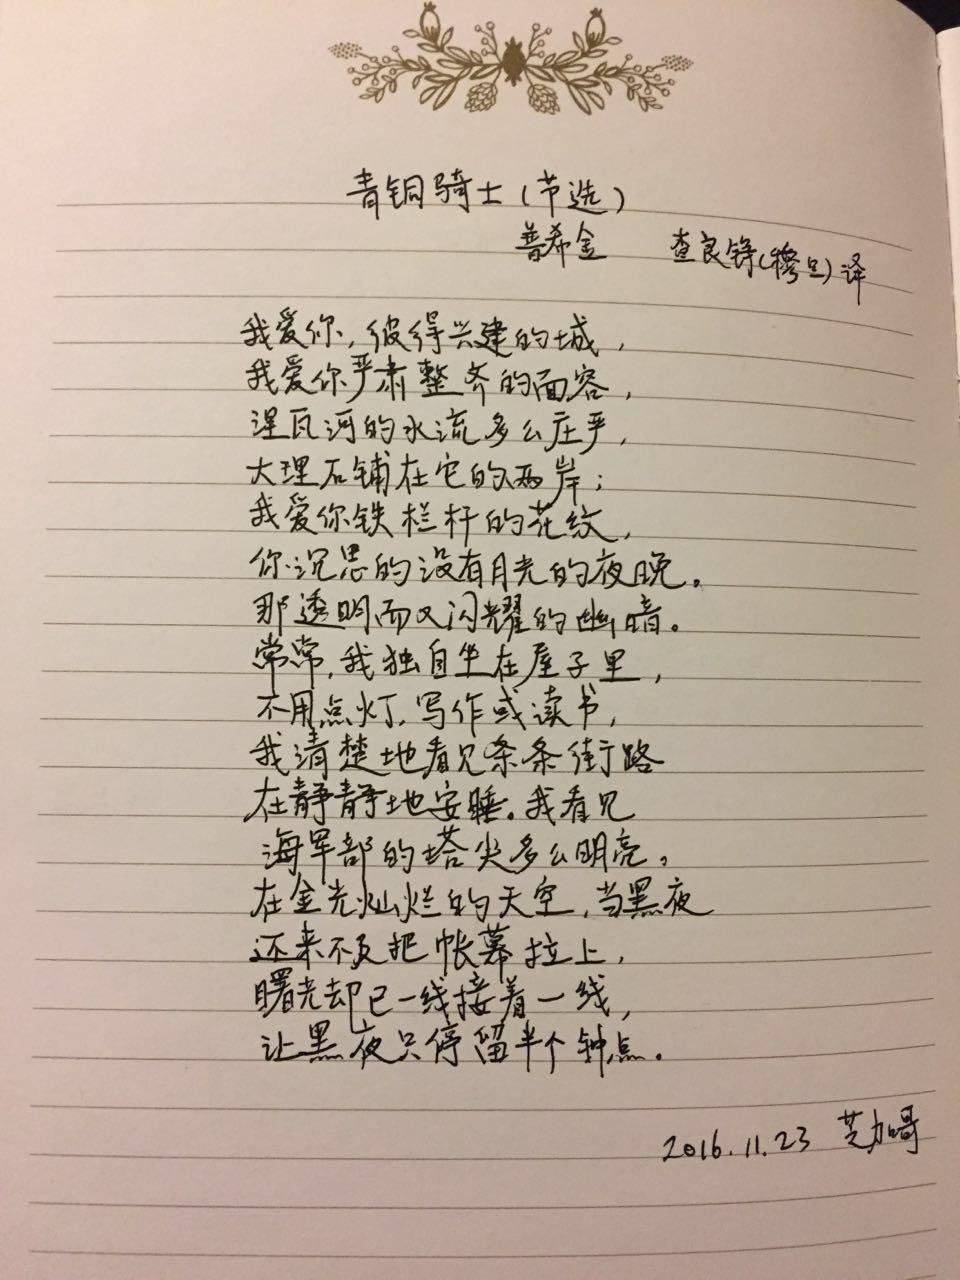 青铜骑士(节选)
普希金 查良铮(穆旦)译
我爱你,彼得兴建的城,
我爱你严肃整齐的面容,
涅瓦河的水流多么庄严,
大理石铺在它的两岸;
我爱你铁栏杆的花纹,
你沉思的没有月光的夜晚。
那透明而又闪耀的幽暗。
常常,我独自坐在屋子里,
不用点灯,写作或读书,
我清楚地看见条条街路
在静静地安睡。我看见
海军部的塔尖多么明亮,
在金光灿烂的天空,当黑夜
还来不及把帐幕拉上,
曙光却已一线接着一线,
让黑夜只停留半个钟点。
2016.11.23 芝加哥